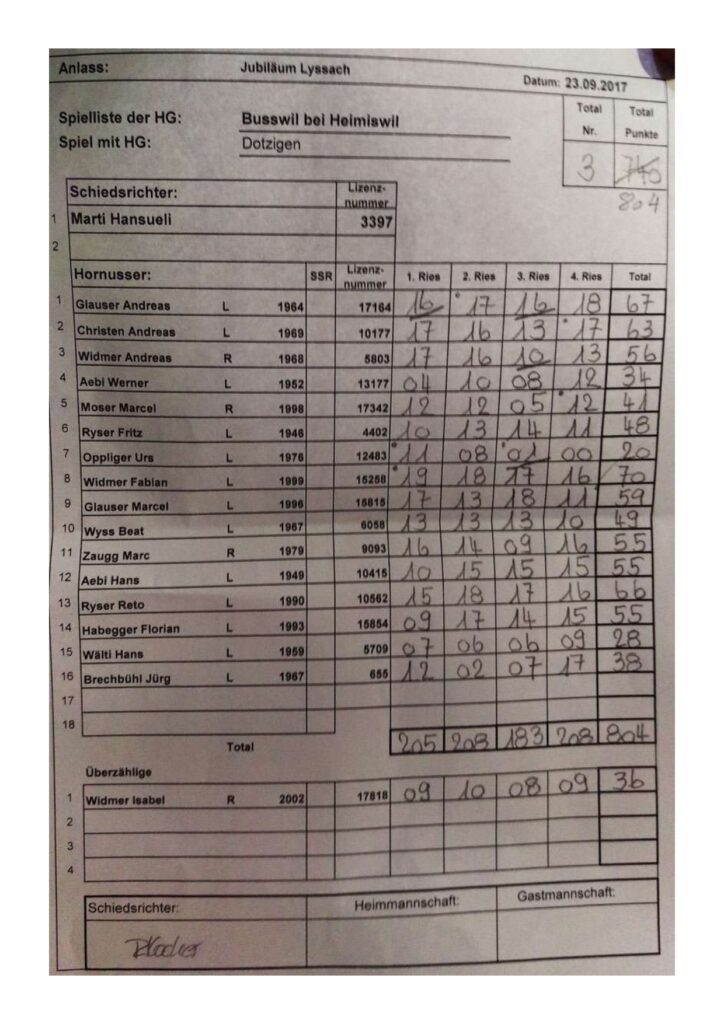 Anlass: Jubiläum Lyssach Datum: 23.09.2017
Spielliste der HG: Busswil bei Heimiswil Total Nr. Total Punkte
Spiel mit HG: Dotzigen 3 745
804
Schiedsrichter: Lizenz-nummer
1 Marti Hansueli 3397
2
Hornusser: SSR Lizenz-nummer 1. Ries 2. Ries 3. Ries 4. Ries Total
1 Glauser Andreas L 1964 17164 16 17 16 18 67
2 Christen Andreas L 1969 10177 17 16 13 17 63
3 Widmer Andreas R 1968 5803 17 16 10 13 56
4 Aebi Werner L 1952 13177 04 10 08 12 34
5 Moser Marcel R 1998 17342 12 12 05 12 41
6 Ryser Fritz L 1946 4402 10 13 14 11 48
7 Oppliger Urs L 1976 12483 11 08 01 00 20
8 Widmer Fabian L 1999 15258 19 18 17 16 70
9 Glauser Marcel L 1996 15815 17 13 18 11 59
10 Wyss Beat L 1967 6058 13 13 13 10 49
11 Zaugg Marc R 1979 9093 16 14 09 16 55
12 Aebi Hans L 1949 10415 10 15 15 15 55
13 Ryser Reto L 1990 10562 15 18 17 16 66
14 Habegger Florian L 1993 15854 09 17 14 15 55
15 Wälti Hans L 1959 5709 07 06 06 09 28
16 Brechbühl Jürg L 1967 655 12 02 07 17 38
17
18
Total 205 208 183 208 804
Überzählige
1 Widmer Isabel R 2002 17818 09 10 08 09 36
2
3
4
Schiedsrichter: Heimmannschaft: Gastmannschaft: